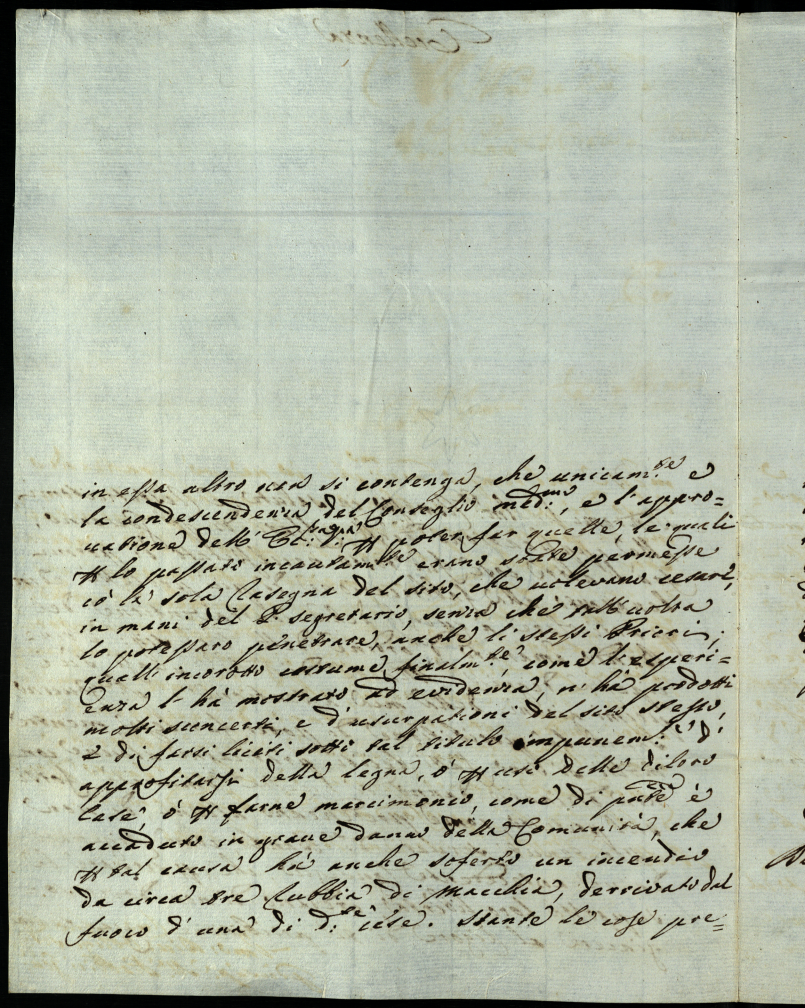 in essa altro non si contenga, che unicam:te e
la condescendenza del Conseglio med:mo, e l'appro=
uatione dell' poter far quelle, le quali
lo passato incautam:te erano state permesse
cò la sola Casegna del sito, che uolevano cesare,
in mani del S. segretario, senza che tall'uolta
lo potessaro penetrare, anche li stessi Priori;
quell' incorotto costume finalm:te, come l'esperi=
enza l'hà mostrato ad evidenza, n'hà prodotti
molti sconcerti, e d'usurpationi del sito stesso,
e di farsi liciti sotto tal titulo impunem:te d'
approfitarsi della legna, ò usi delle diloro
Case, ò farne marcimonio, come di è
accaduto in graue danno della Comunità, che
tal causa hà anche soferto un incendio
da circa tre Rubbia di Macchia, derrivato dal
fuoco d'una di d:te cése. Stante le cose pre=